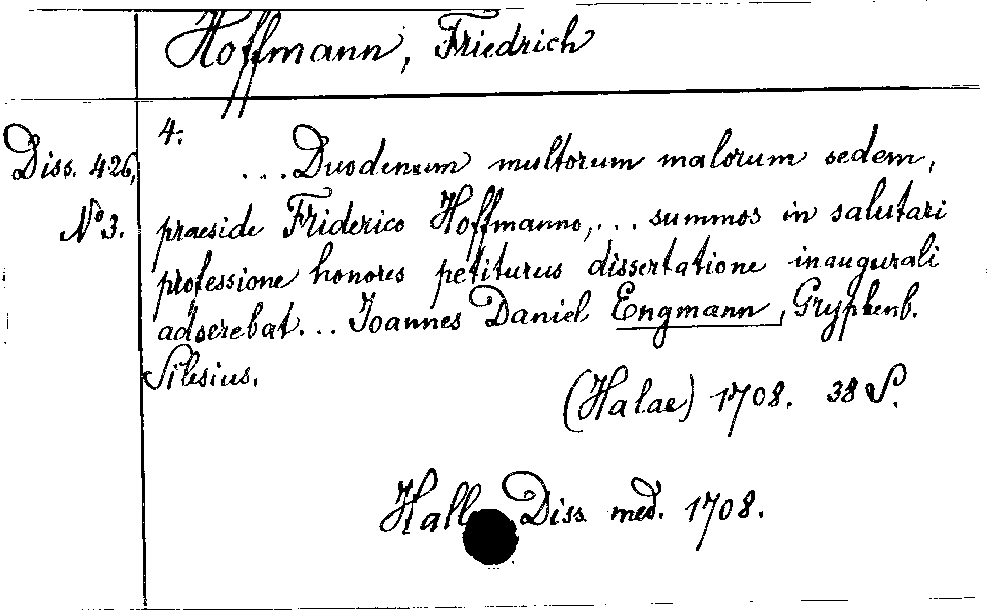 Hoffmann, Friedrich
4.
Diss. 426, ...Duodenum multorum malorum sedem,
No 3. praeside Friderico Hoffmanno,... summos in salutari
professione honores petiturus dissertatione inaugurali
adserebat... Joannes Daniel Engmann, Gryphenb.
Silesius.
(Halae) 1708. 38 S.
Halle Diss. med. 1708.